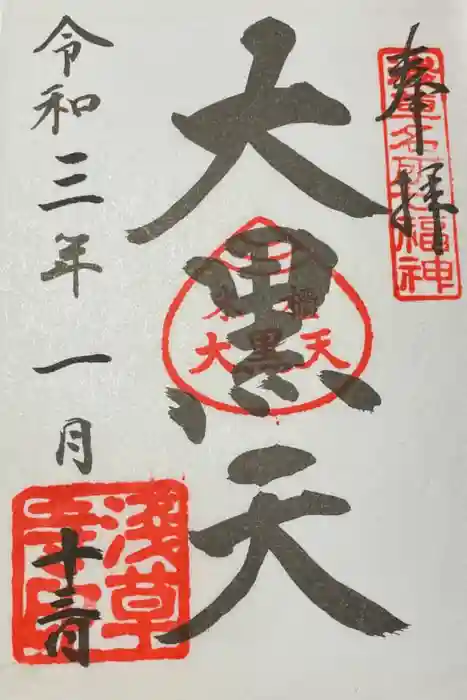 奉拝
浅草名所七福神
大黒天
米櫃
大黒天
令和三年一月
十三日
浅草